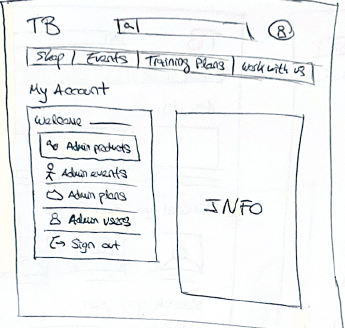 TB
Shop | Events | Training Plans | Work with us
My Account
Welcome
Admin products
Admin events
Admin plans
Admin users
Sign out
INFO